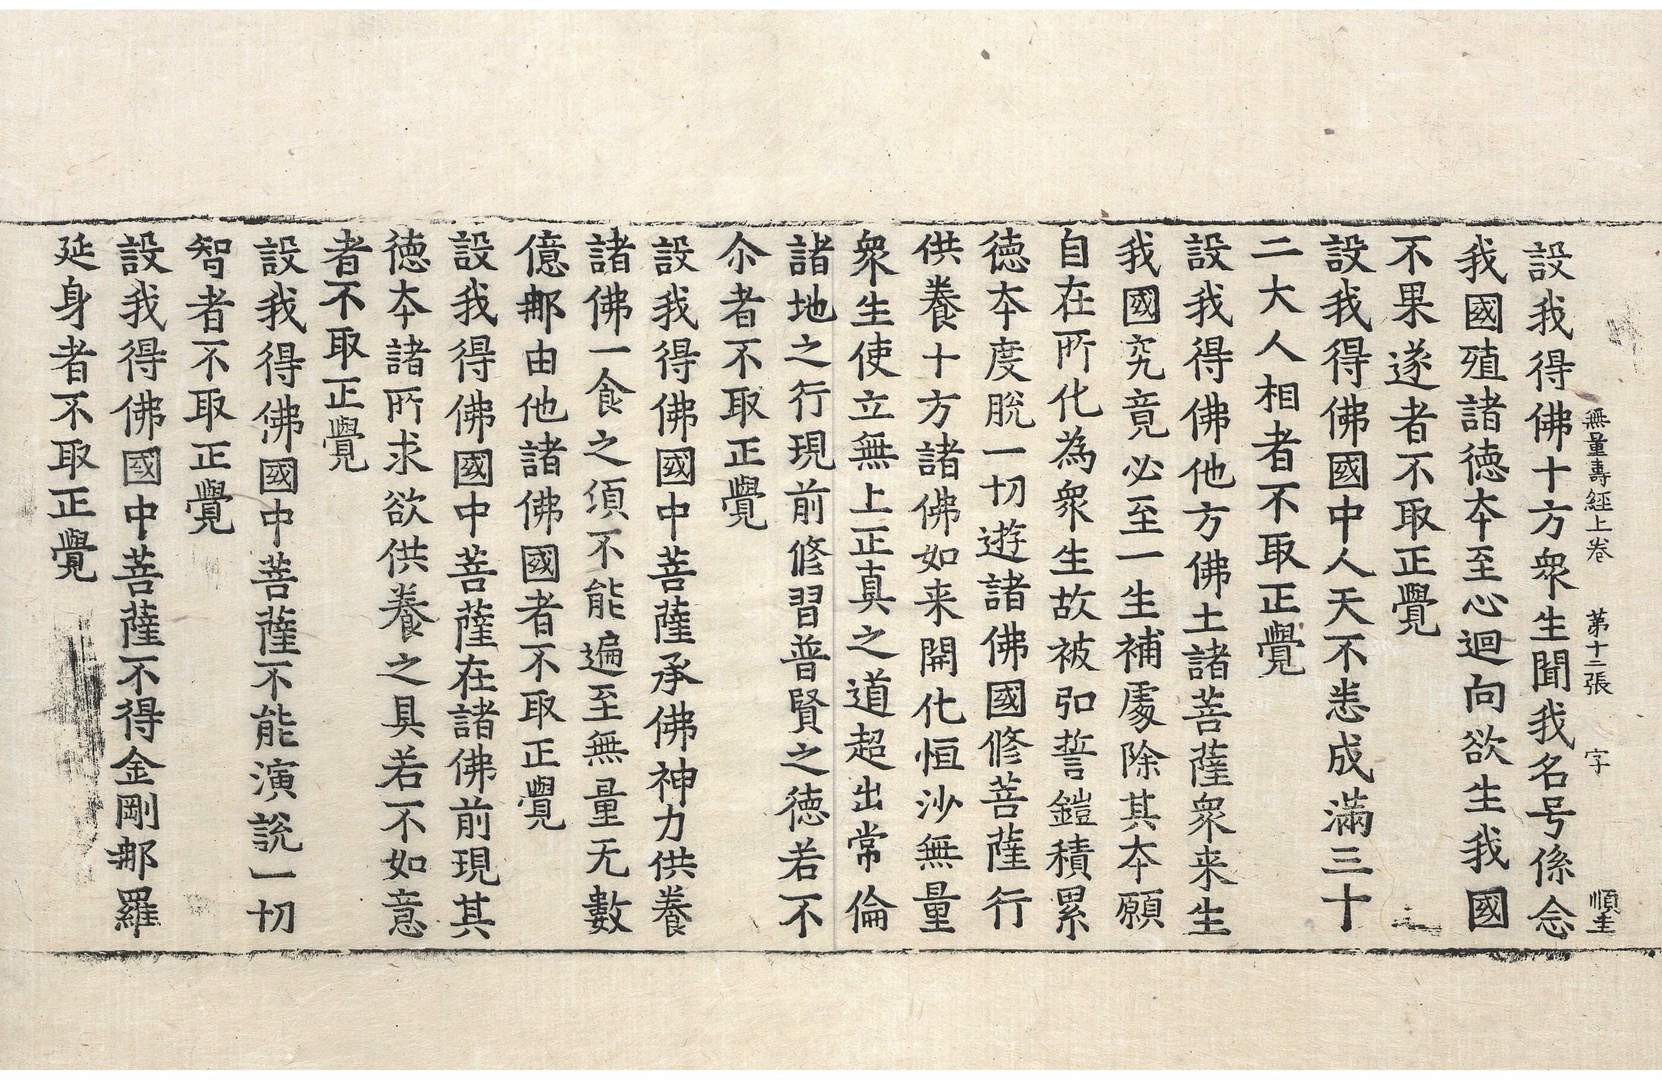 無量壽經上卷 第十二張 字 順圭
設我得佛十方衆生聞我名号係念
我國殖諸德本至心迴向欲生我國
不果遂者不取正覺
設我得佛國中人天不悉成滿三十
二大人相者不取正覺
設我得佛他方佛土諸菩薩衆来生
我國究竟必至一生補處除其本願
自在所化為衆生故被弘誓鎧積累
德本度脫一切遊諸佛國修菩薩行
供養十方諸佛如来開化恒沙無量
衆生使立無上正真之道超出常倫
諸地之行現前修習普賢之德若不
尒者不取正覺
設我得佛國中菩薩承佛神力供養
諸佛一食之湏不能遍至無量无數
億那由他諸佛國者不取正覺
設我得佛國中菩薩在諸佛前現其
德本諸所求欲供養之具若不如意
者不取正覺
設我得佛國中菩薩不能演說一切
智者不取正覺
設我得佛國中菩薩不得金剛那羅
延身者不取正覺